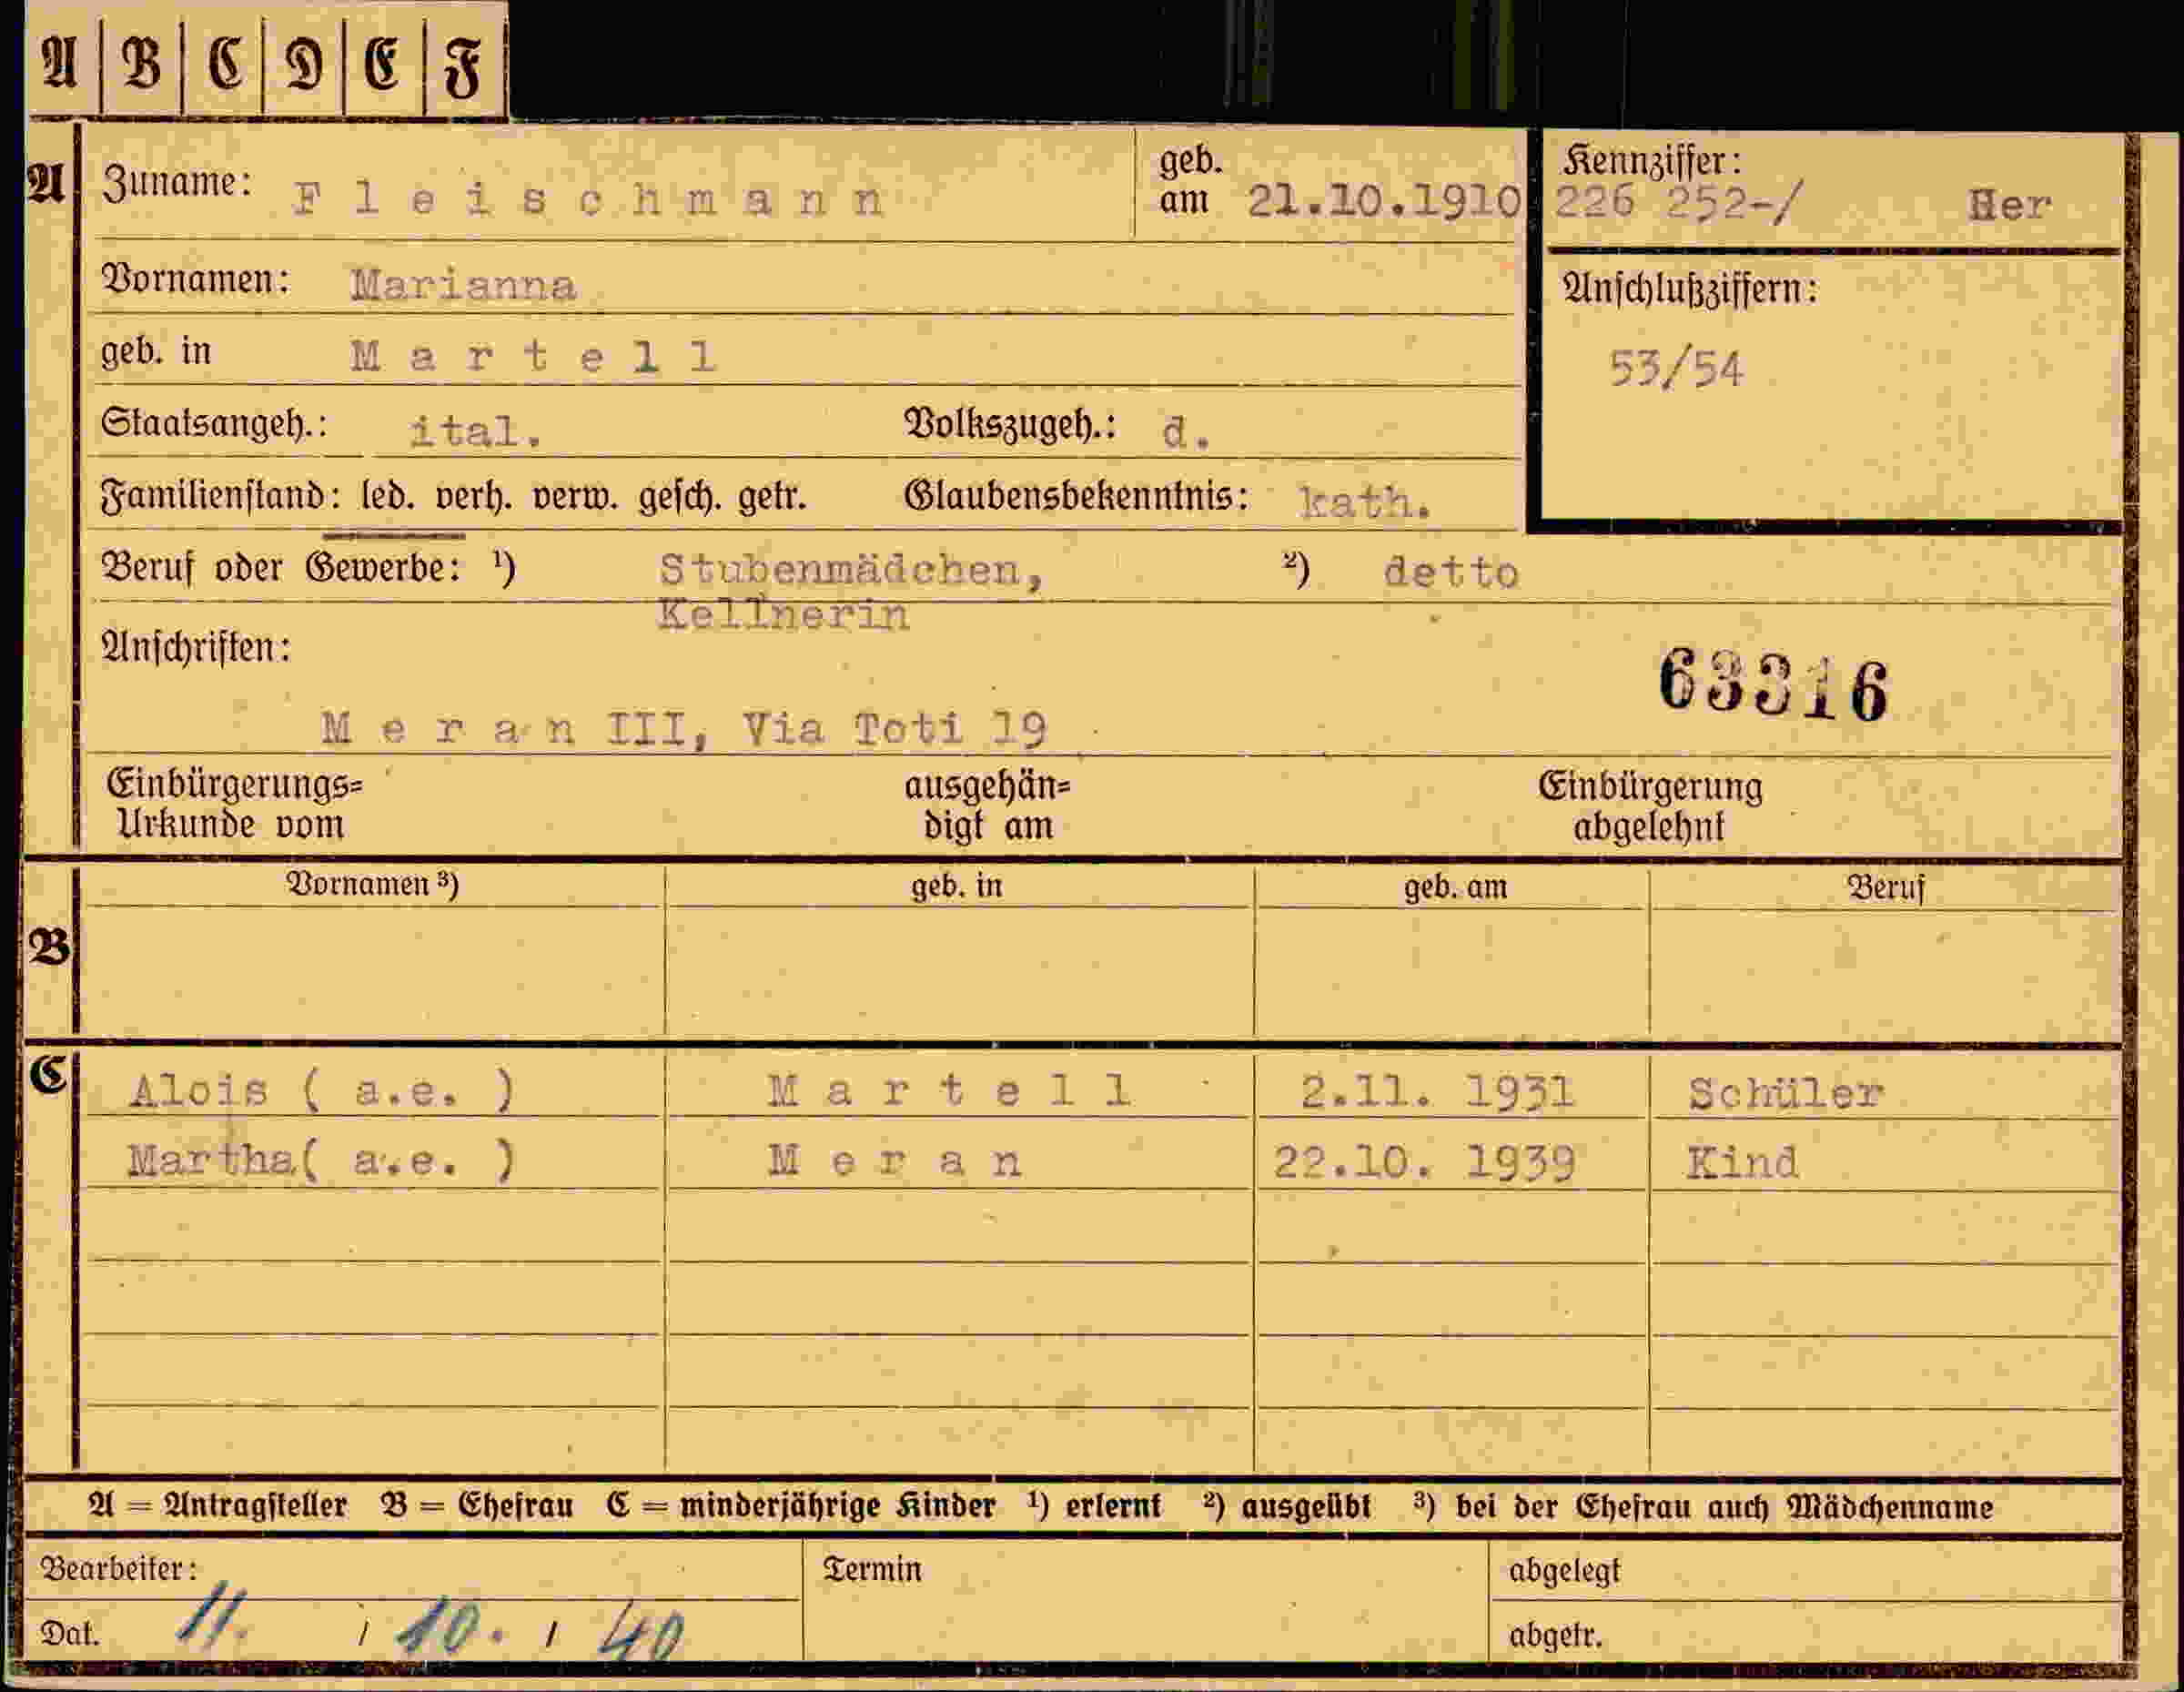 A B C D E F
A Zuname: Fleischmann geb. am 21.10.1910 Kennziffer: 226 252-/ Her
Vornamen: Marianna Anschlußziffern:
geb. in Martell 53/54
Staatsangeh.: ital. Volkszugeh.: d.
Familienstand: led. verh. verw. gesch. getr. Glaubensbekenntnis: kath.
Beruf oder Gewerbe: ¹) Stubenmädchen, ²) detto
Kellnerin
Anschriften: 63316
Meran III, Via Toti 19
Einbürgerungs= ausgehän= Einbürgerung
Urkunde vom digt am abgelehnt
Vornamen ³) geb. in geb. am Beruf
B
C Alois ( a.e. ) Martell 2.11. 1931 Schüler
Martha( a.e. ) Meran 22.10. 1939 Kind
A = Antragsteller B = Ehefrau C = minderjährige Kinder ¹) erlernt ²) ausgeübt ³) bei der Ehefrau auch Mädchenname
Bearbeiter: Termin abgelegt
Dat. 11. / 10. / 40 abgetr.